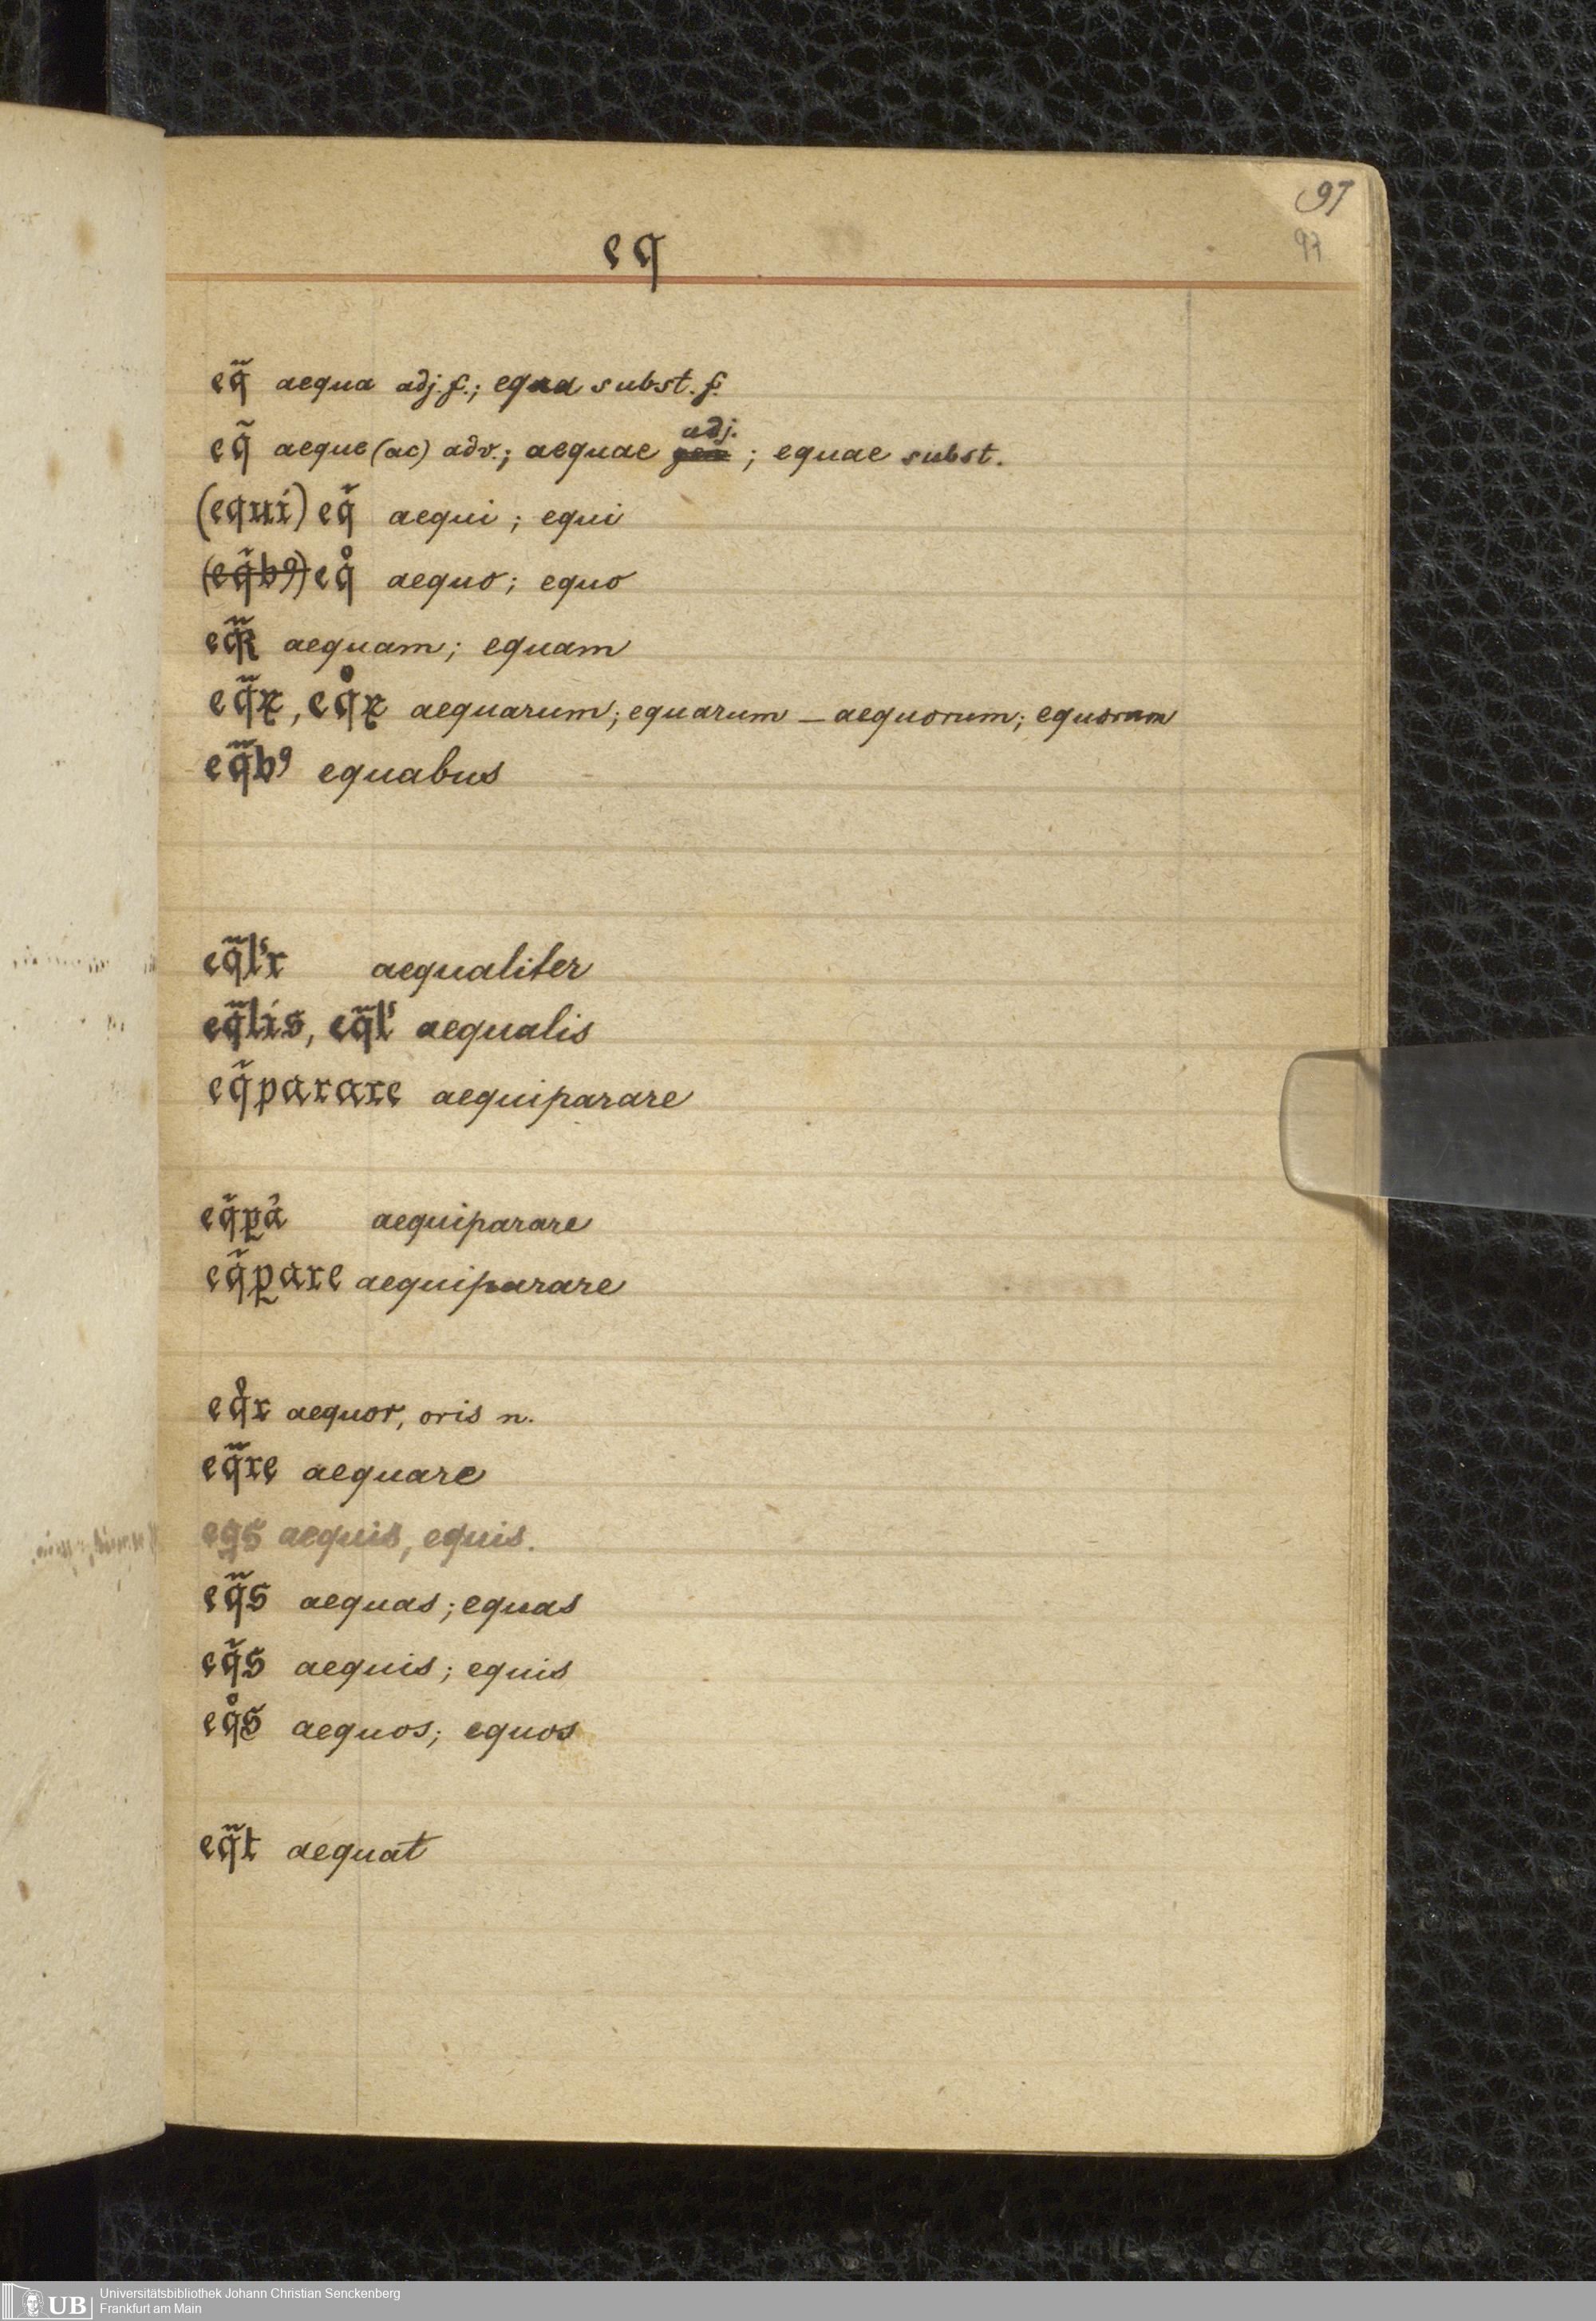 97
97
eq
eq̃ aequa adj. f.; equa subst. f.
eq̃ aeque (ac) adv.; aequae adj. ; equae subst.
(equi) eq̃ aequi ; equi
(eq̃bꝰ) eq̊ aequo ; equo
eq̃ aequam ; equam
eq̃ꝝ, eq̊ꝝ aequarum ; equarum – aequorum ; equorum
eq̃bꝰ equabus
eq̃lr̓ aequaliter
eq̃lis, eq̃l̓ aequalis
eq̃parare aequiparare
eq̃ꝑa᷑ aequiparare
eq̃ꝑare aequiparare
eq̊r aequor, oris n.
eq̃re aequare
eqs aequis, equis.
eq̃s aequas ; equas
eq̃s aequis ; equis
eq̊s aequos ; equos
eq̃t aequat
UB
Universitätsbibliothek Johann Christian Senckenberg
Frankfurt am Main